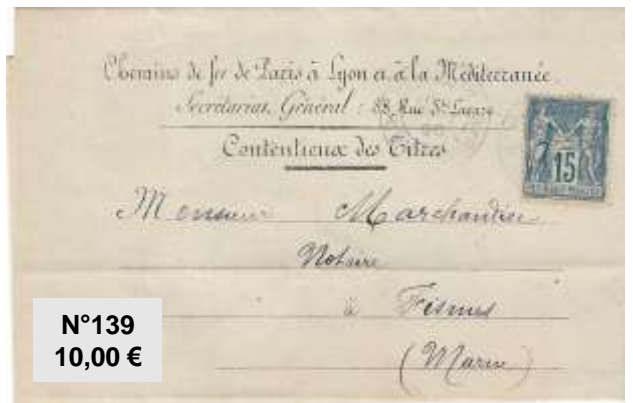 Chemins de fer de Paris à Lyon et à la Méditerranée
Secrétariat Général : 88, Rue St Lazare
Contentieux des Titres
15
Monsieur Marchandise
Notaire
à Fismes
(Marne)
N°139
10,00 €